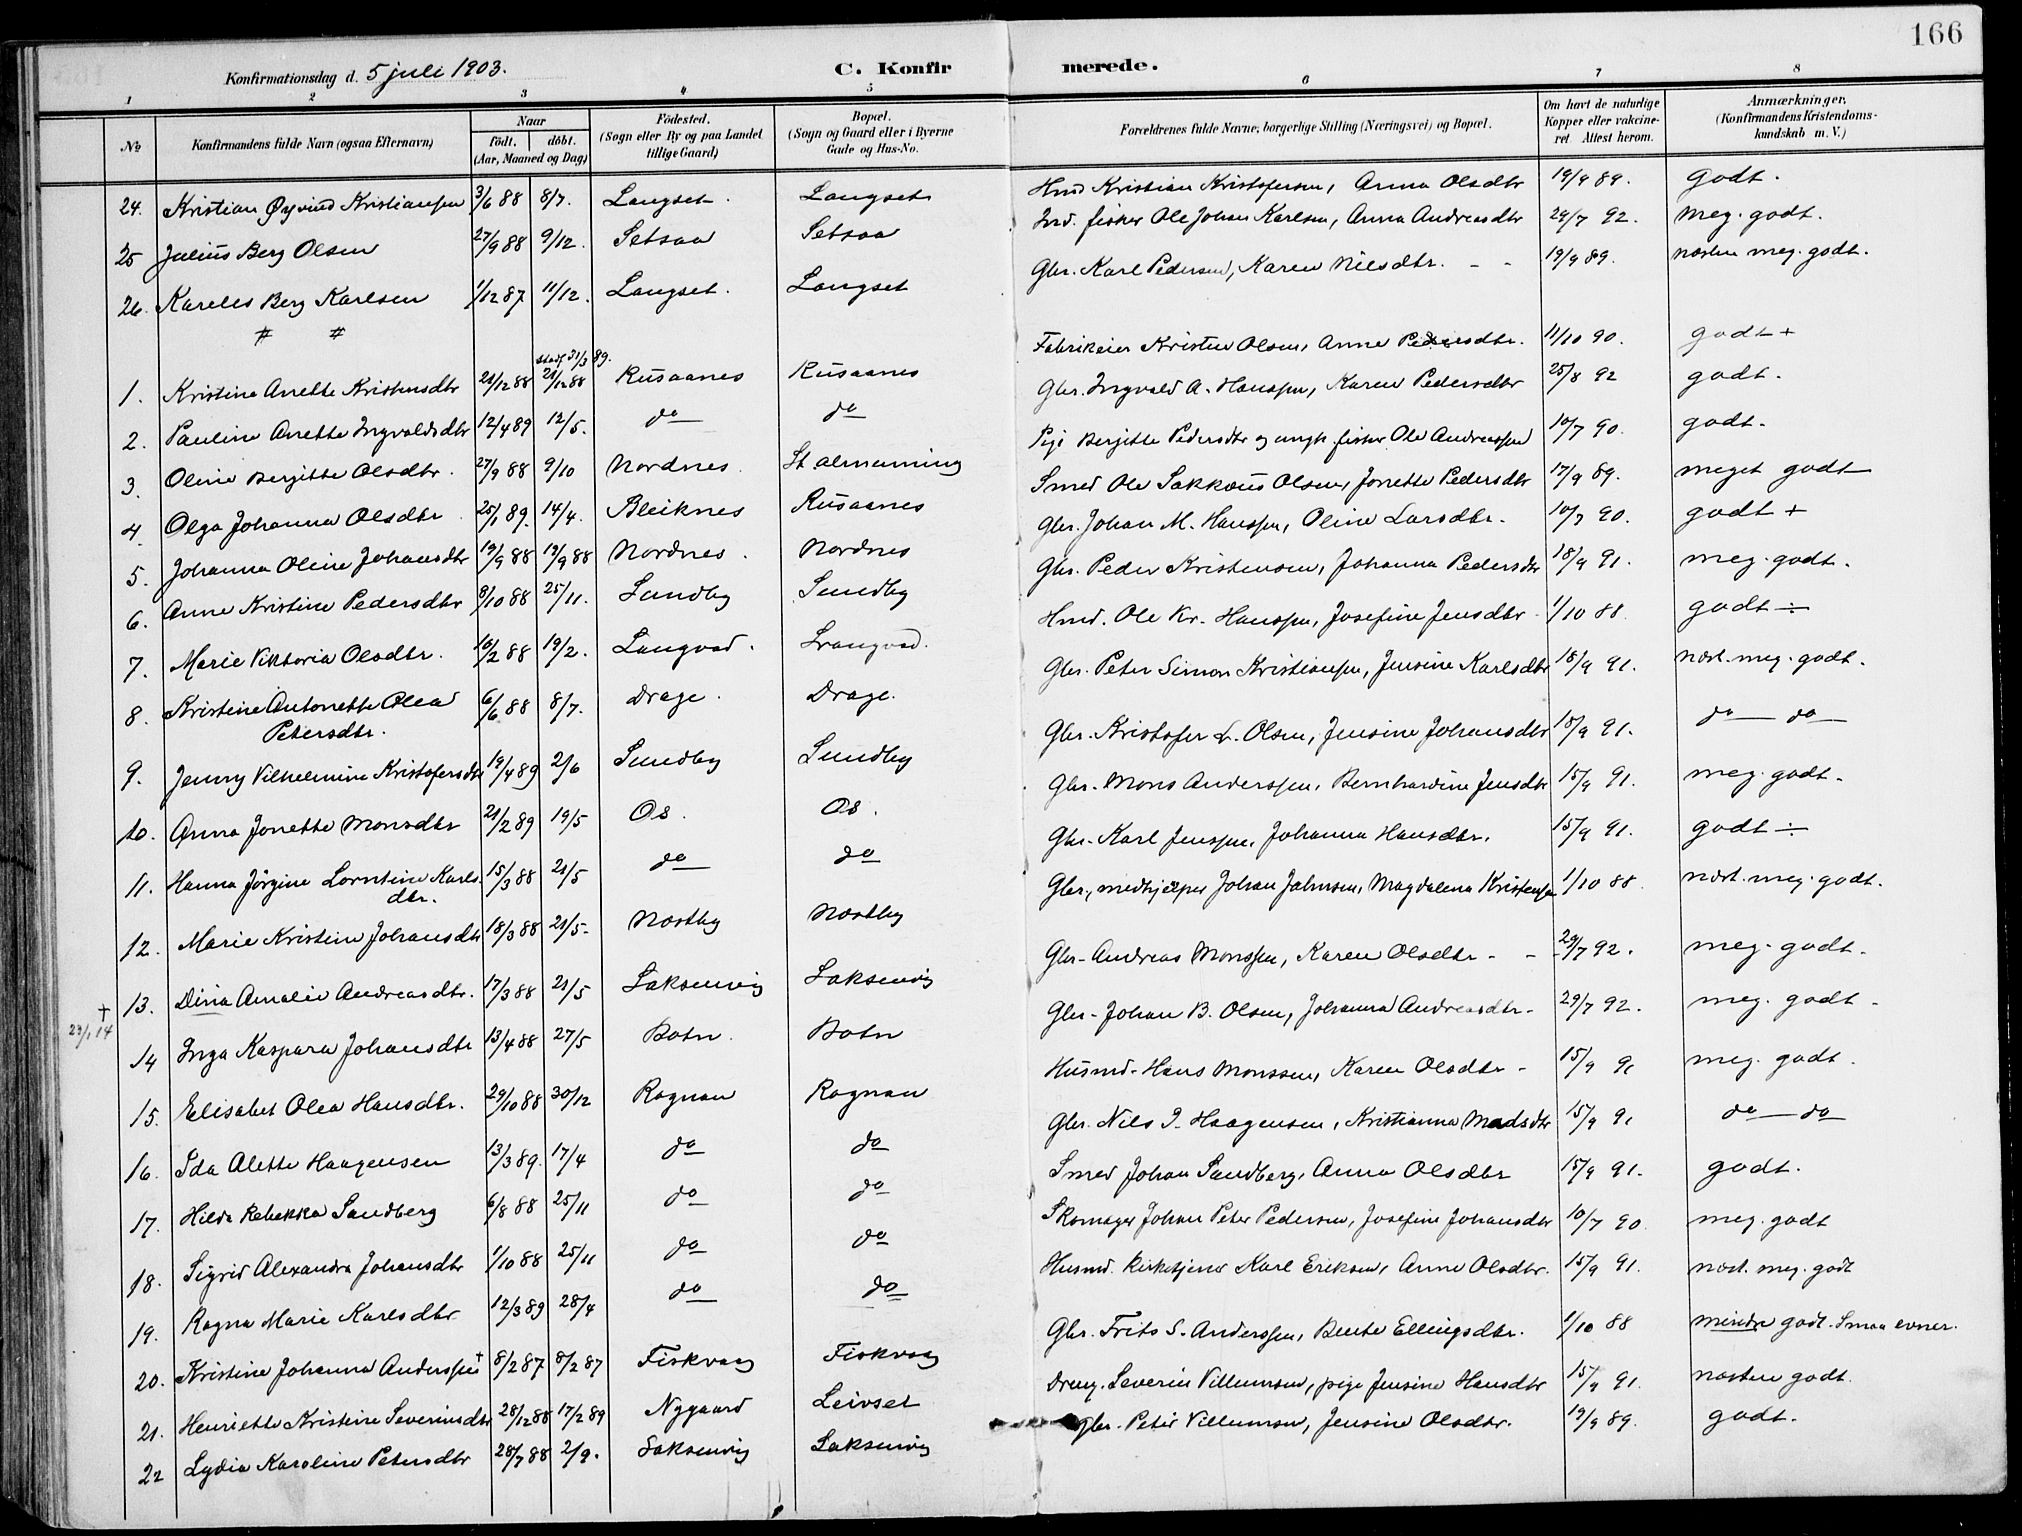 166
Konfirmationsdag d. 5 juli 1903.
C. Konfirmerede.
1 2 3 4 5 6 7 8
No
Konfirmandens fulde Navn (ogsaa Efternavn)
Naar
födt. döbt.
(Aar, Maaned og Dag)
Födested.
(Sogn eller By og paa Landet
tillige Gaard)
Bopæl.
(Sogn og Gaard eller i Byerne
Gade og Hus-No.
Forældrenes fulde Navne, borgerlige Stilling (Næringsvei) og Bopæl.
Om havt de naturlige
Kopper eller vakcine-
ret Attest herom.
Anmærkninger.
(Konfirmandens Kristendoms-
kundskab m. V.)
24. Kristian Øyvind Kristianssen 3/6 88 8/7. Langset. Langset Hmd Kristian Kristofersen, Anna Olsdtr 19/9 89. godt.
25 Julius Berg Olsen 27/9 88 9/12. Setsaa Setsaa Ind. fisker Ole Johan Karlsen, Anna Andreasdtr 29/7 92. meg. godt.
26. Kareles Berg Karlsen 1/12 87 11/12. Langset. Langset Gbr. Karl Pedersen, Karen Nilsdtr. - - 19/9 89. næsten meg. godt.
# #
stadf 31/3 89.
1. Kristine Anette Kristensdtr 21/12 88 21/12 88 Rusaanes Rusaanes Fabrikeier Kristen Olsen, Anne Pedersdtr. 11/10 90. godt +
2. Pauline Anette Ingvaldsdtr 12/4 89 12/5. do do Gbr. Ingvald A. Hanssen, Karen Pedersdtr 25/8 92 godt.
3. Oline Bergitte Olsdtr. 27/9 88 9/10 Nordnes. St almenning Pige Bergitte Pedersdtr og ungk. fisker Ole Andreassen 10/7 90. godt.
4. Olga Johanna Olsdtr 25/1 89. 14/4. Bleiknes Rusaanes Smed Ole Sakkæus Olsen, Jonette Pedersdtr 17/9 89. meget godt
5. Johanna Oline Johansdtr 19/9 88 19/9 88 Nordnes. Nordnes Gbr. Johan M. Hanssen, Oline Larsdtr. 10/7 90. godt +
6. Anne Kristine Pedersdtr 8/10 88 25/11. Sundby Sundby Gbr. Peder Kristensen, Johanna Pedersdtr 18/9 91. meg. godt.
7. Marie Viktoria Olsdtr. 10/2 88 19/2. Langvad. Langvad. Hmd. Ole Kr. Hanssen, Josefine Jensdtr 1/10 88. godt ÷
8. Kristine Antonette Olea
Petersdtr. 6/6 88 8/7. Drage. Drage. Gbr. Peter Simon Kristianssen, Jensine Karlsdtr 18/9 91. næst. meg. godt.
9. Jenny Vilhelmine Kristofersdtr 19/4 89 2/6 Sundby Sundby Gbr. Kristofer L. Olsen, Jensine Johansdtr 15/9 91. do do
10. Anna Jonette Monsdtr 21/2 89 19/5 Os. Os. Gbr. Mons Anderssen, Bernhardine Jensdtr 15/9 91. meg. godt.
11. Hanna Jörgine Lorntine Karls-
dtr. 15/3 88 21/5 do do Gbr. Karl Jenssen, Johanna Hansdtr. 15/9 91. godt ÷
12. Marie Kristine Johansdtr 18/3 88 21/5. Næstby Næstby Gbr., medhjælper Johan Jahnsen, Magdalena Kristensen 1/10 88. næst. meg. godt.
13. Dina Amalie Andreasdtr. 17/3 88 21/5 Saksenvig Saksenvig Gbr. Andreas Monssen, Karen Olsdtr - - 29/7 92. meg. godt.
† 23/1 14
14 Inga Kaspara Johansdtr 13/4 88 27/5 Botn. Botn Gbr. Johan B. Olsen, Johanna Andreasdtr. 29/7 92. meg. godt.
15. Elisabet Olea Hansdtr. 29/10 88 30/12 Rognan Rognan Husmd. Hans Monssen, Karen Olsdtr - 15/9 91 meg. godt.
16. Ida Alette Haagensen 13/3 89. 17/4 do do Gbr. Nils J. Haagensen, Kristianna Madsdtr 15/9 91 do do
17. Hilda Rebekka Sandberg 6/8 88 25/11 do do Smed Johan Sandberg, Anna Olsdtr 15/9 91. godt.
18. Sigrid Alexandra Johansdtr 1/10 88 25/11 do do Skomager Johan Peter Pedersen, Josefine Johansdtr 10/7 90. meg. godt
19. Ragna Marie Karlsdtr 12/3 89 28/4 do do Husmd. Kirketjener Karl Eriksen, Anne Olsdtr. 15/9 91. næst. meg. godt
20. Kristine Johanna Anderssen † 8/2 87 8/2 87 Fiskvaag Fiskvaag Gbr. Frits S. Anderssen, Bente Ellingsdtr. 1/10 88 mindre godt. Smaa evner.
21. Henriette Kristine Severinsdtr 28/12 88 17/2 89 Nygaard Leivset Dreng. Severin Villumsen, pige Jensine Hansdtr 15/9 91. næsten godt.
22 Lydia Karoline Petersdtr 28/7 88 2/9. Saksenvig Saksenvig Gbr. Peter Villumsen, Jensine Olsdtr. 19/9 89. godt.